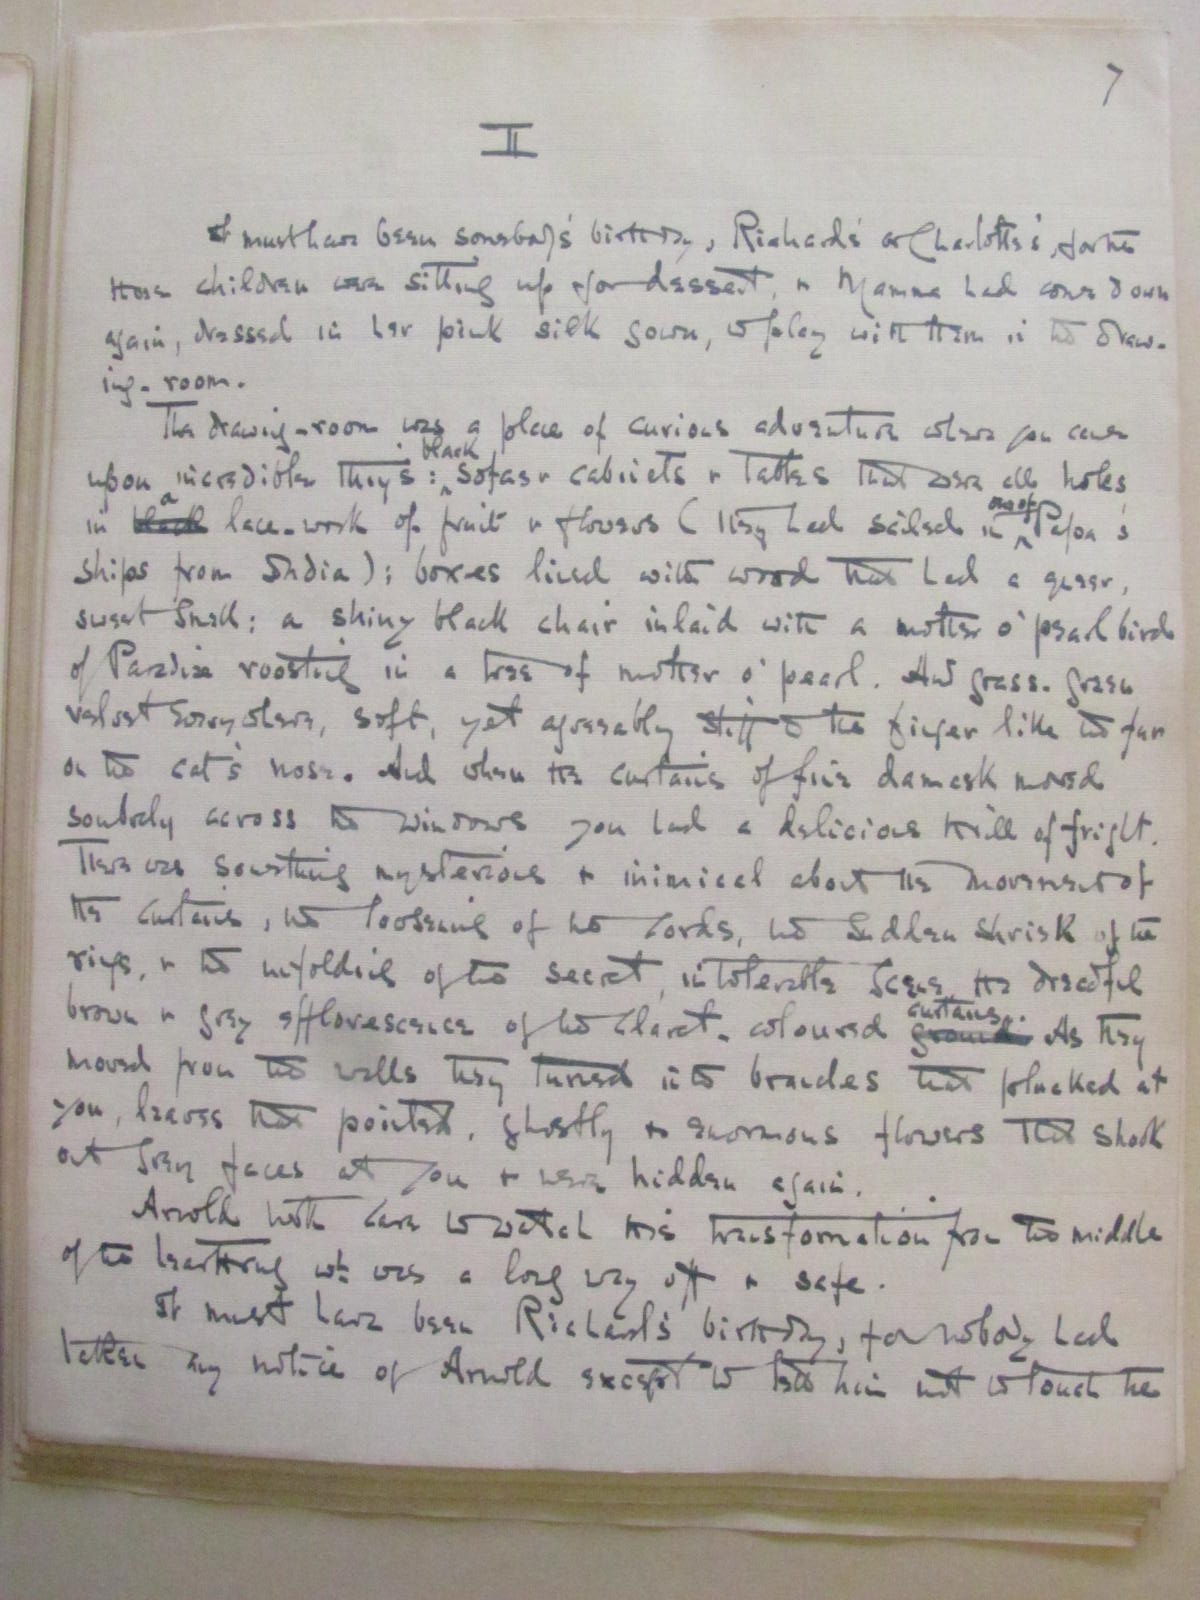 7
II
It must have been somebody's birthday, Richard's or Charlotte's, for the
three children were sitting up for dessert, & Mamma had come down
again, dressed in her pink silk gown, to play with them in the draw-
ing-room.
The drawing-room was a place of curious adventure where you came
upon incredible things: black sofas & cabinets & tables that were all holes
in a black lace-work of fruit & flowers (they had sailed in one of Papa's
ships from India); boxes lined with wood that had a queer,
sweet smell; a shiny black chair inlaid with a mother o' pearl bird
of Paradise roosting in a tree of mother o' pearl. And grass-green
velvet everywhere, soft, yet agreeably stiff to the finger like the fur
on the cat's nose. And when the curtains of fine damask moved
soberly across the windows you had a delicious thrill of fright.
There was something mysterious & inimical about the movement of
the curtains, the loosening of the cords, the sudden shriek of the
rings, & the unfolding of the secret, intolerable scene, the dreadful
brown & grey efflorescence of the claret-coloured ground curtains. As they
moved from the walls they turned into branches that plucked at
you, leaves that pointed, ghostly & enormous flowers that shook
out grey faces at you & were hidden again.
Arnold took care to watch this transformation from the middle
of the hearthrug wh. was a long way off & safe.
It must have been Richard's birthday, for nobody had
taken any notice of Arnold except to tell him not to touch the